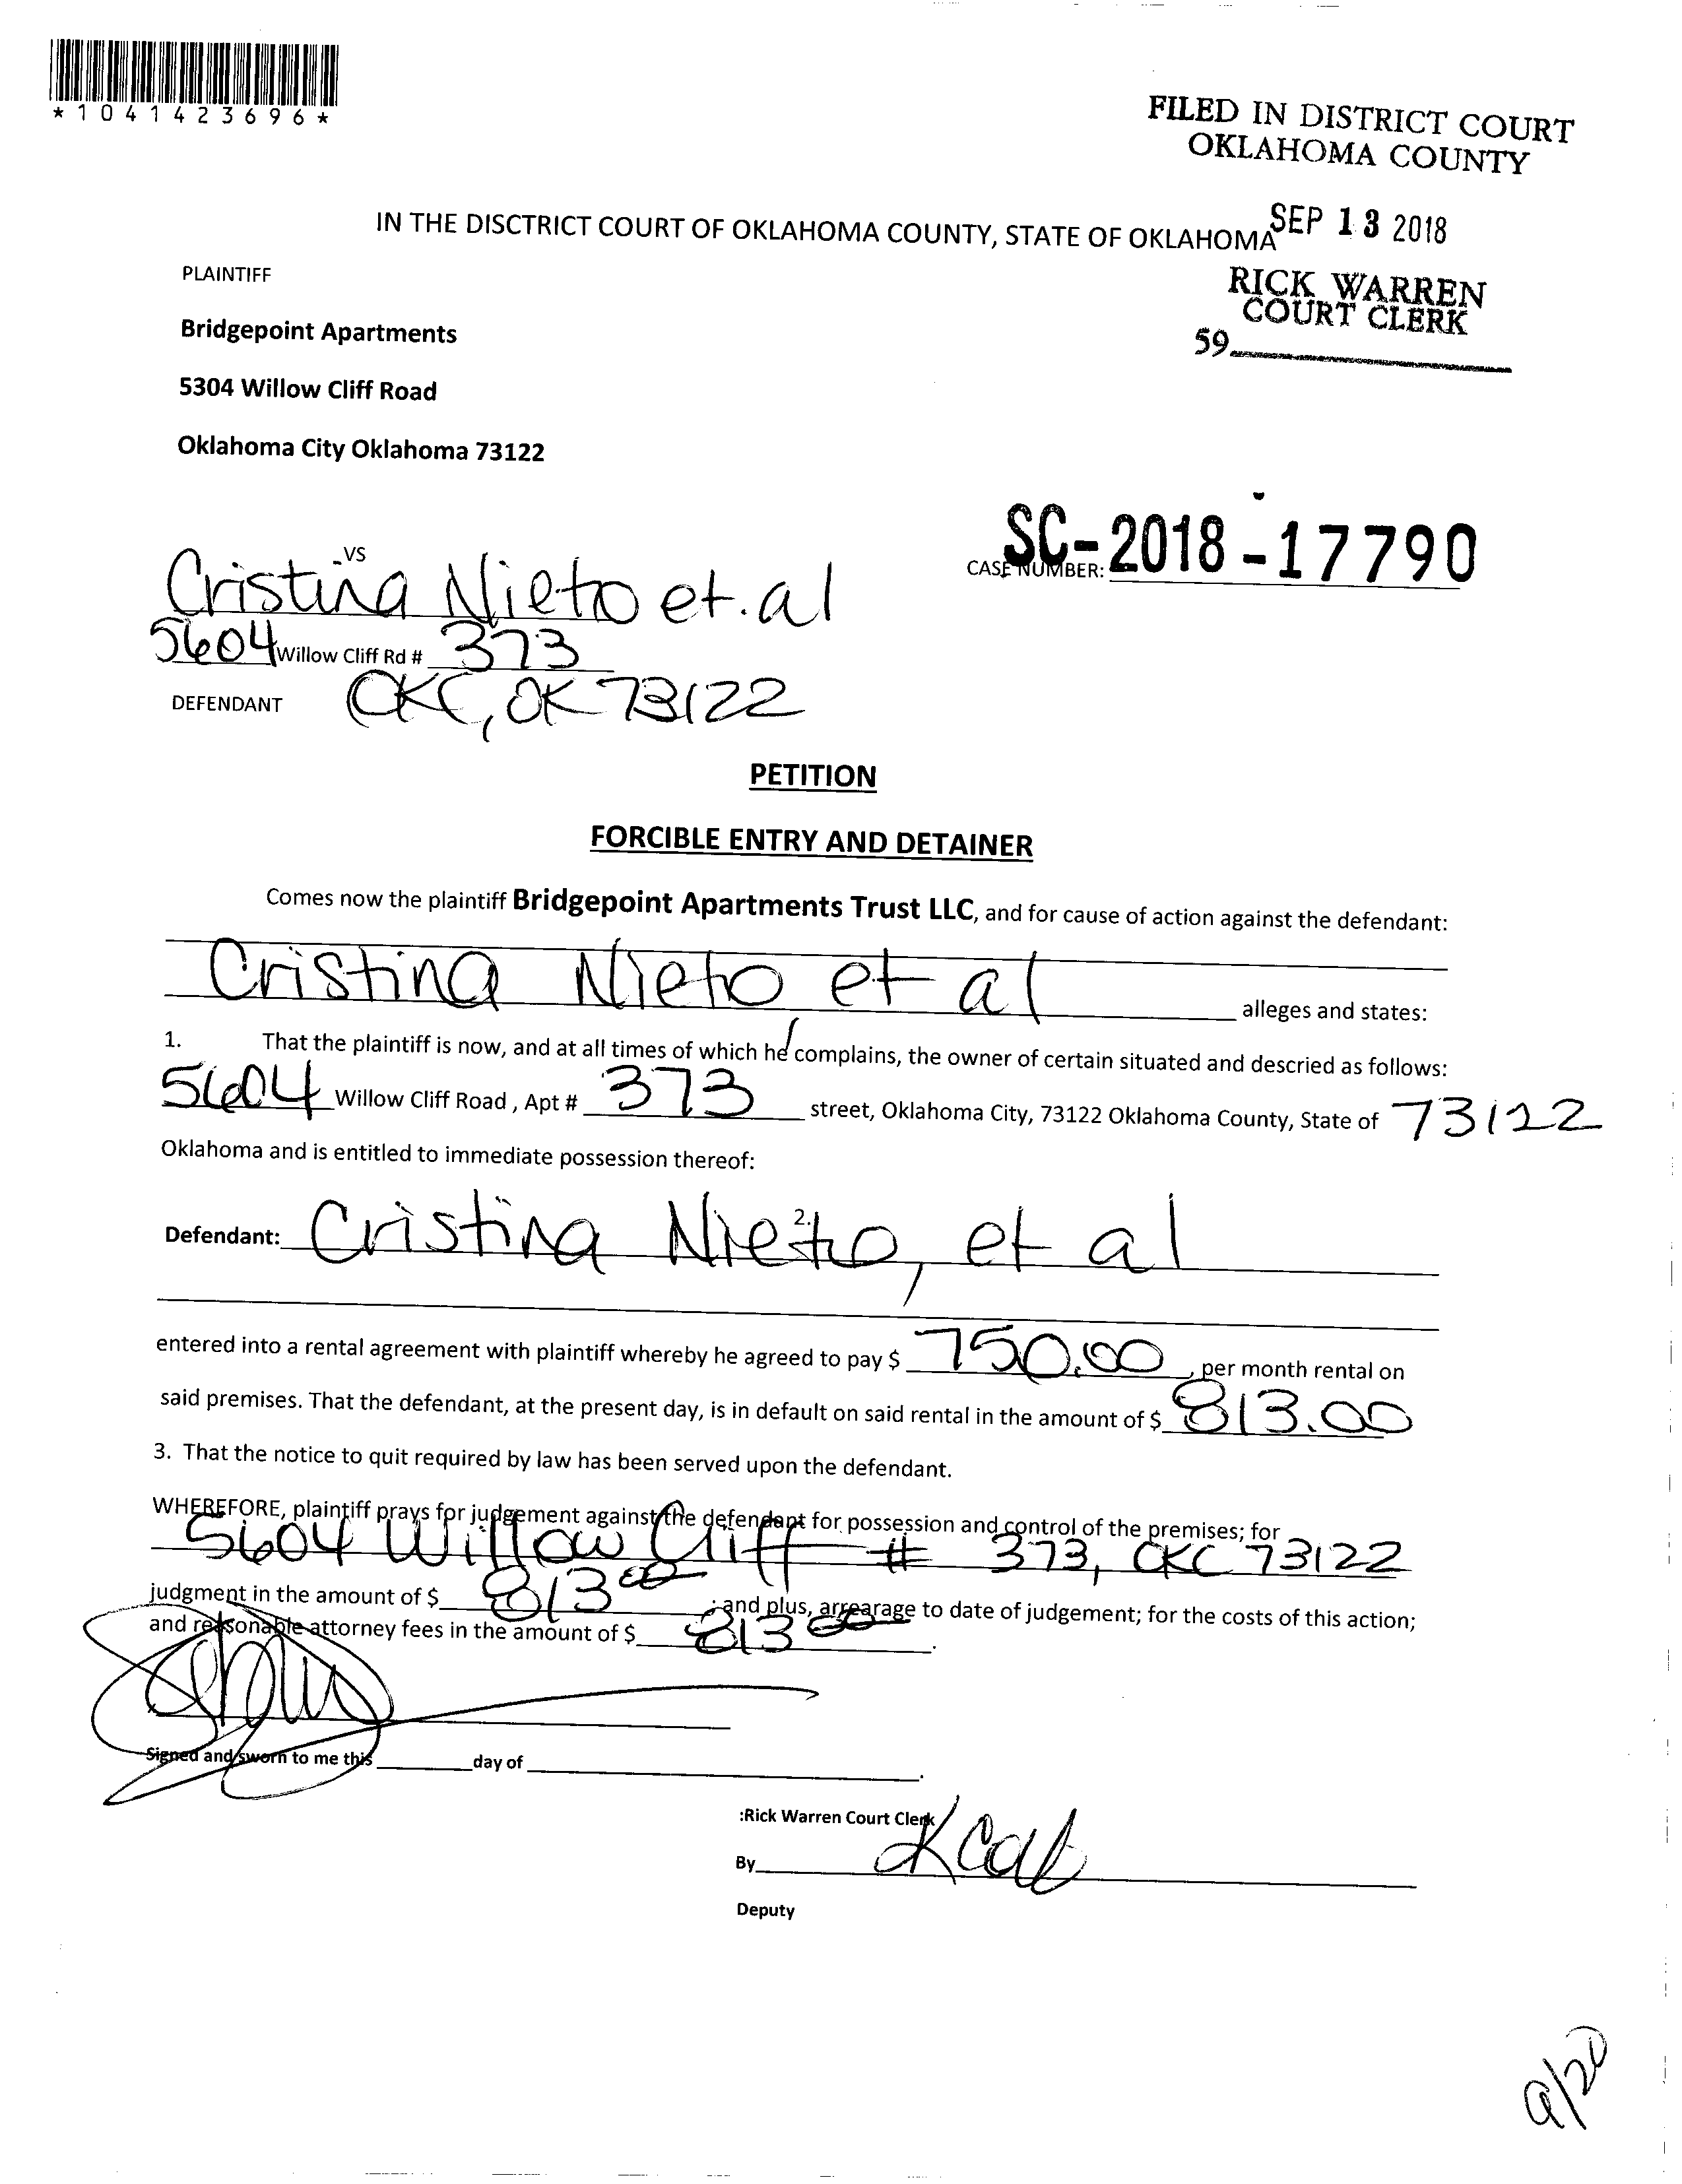 *1041423696*
FILED IN DISTRICT COURT
OKLAHOMA COUNTY
SEP 13 2018
RICK WARREN
COURT CLERK
59
IN THE DISCTRICT COURT OF OKLAHOMA COUNTY, STATE OF OKLAHOMA
PLAINTIFF
Bridgepoint Apartments
5304 Willow Cliff Road
Oklahoma City Oklahoma 73122
VS
CASE NUMBER: SC-2018-17790
Cristina Nieto et.al
5604 Willow Cliff Rd # 373
DEFENDANT OKC, OK 73122
PETITION
FORCIBLE ENTRY AND DETAINER
Comes now the plaintiff Bridgepoint Apartments Trust LLC, and for cause of action against the defendant:
Cristina Nieto et al alleges and states:
1. That the plaintiff is now, and at all times of which he complains, the owner of certain situated and descried as follows:
5604 Willow Cliff Road , Apt # 373 street, Oklahoma City, 73122 Oklahoma County, State of 73122
Oklahoma and is entitled to immediate possession thereof:
2.
Defendant: Cristina Nieto, et al
entered into a rental agreement with plaintiff whereby he agreed to pay $ 750.00, per month rental on
said premises. That the defendant, at the present day, is in default on said rental in the amount of $ 813.00
3. That the notice to quit required by law has been served upon the defendant.
WHEREFORE, plaintiff prays for judgement against the defendant for possession and control of the premises; for
5604 Willow Cliff # 373, OKC 73122
judgment in the amount of $ 813 00 ; and plus, arrearage to date of judgement; for the costs of this action;
and reasonable attorney fees in the amount of $ 813 00.
Signed and sworn to me this day of .
:Rick Warren Court Clerk
By
Deputy
9/20